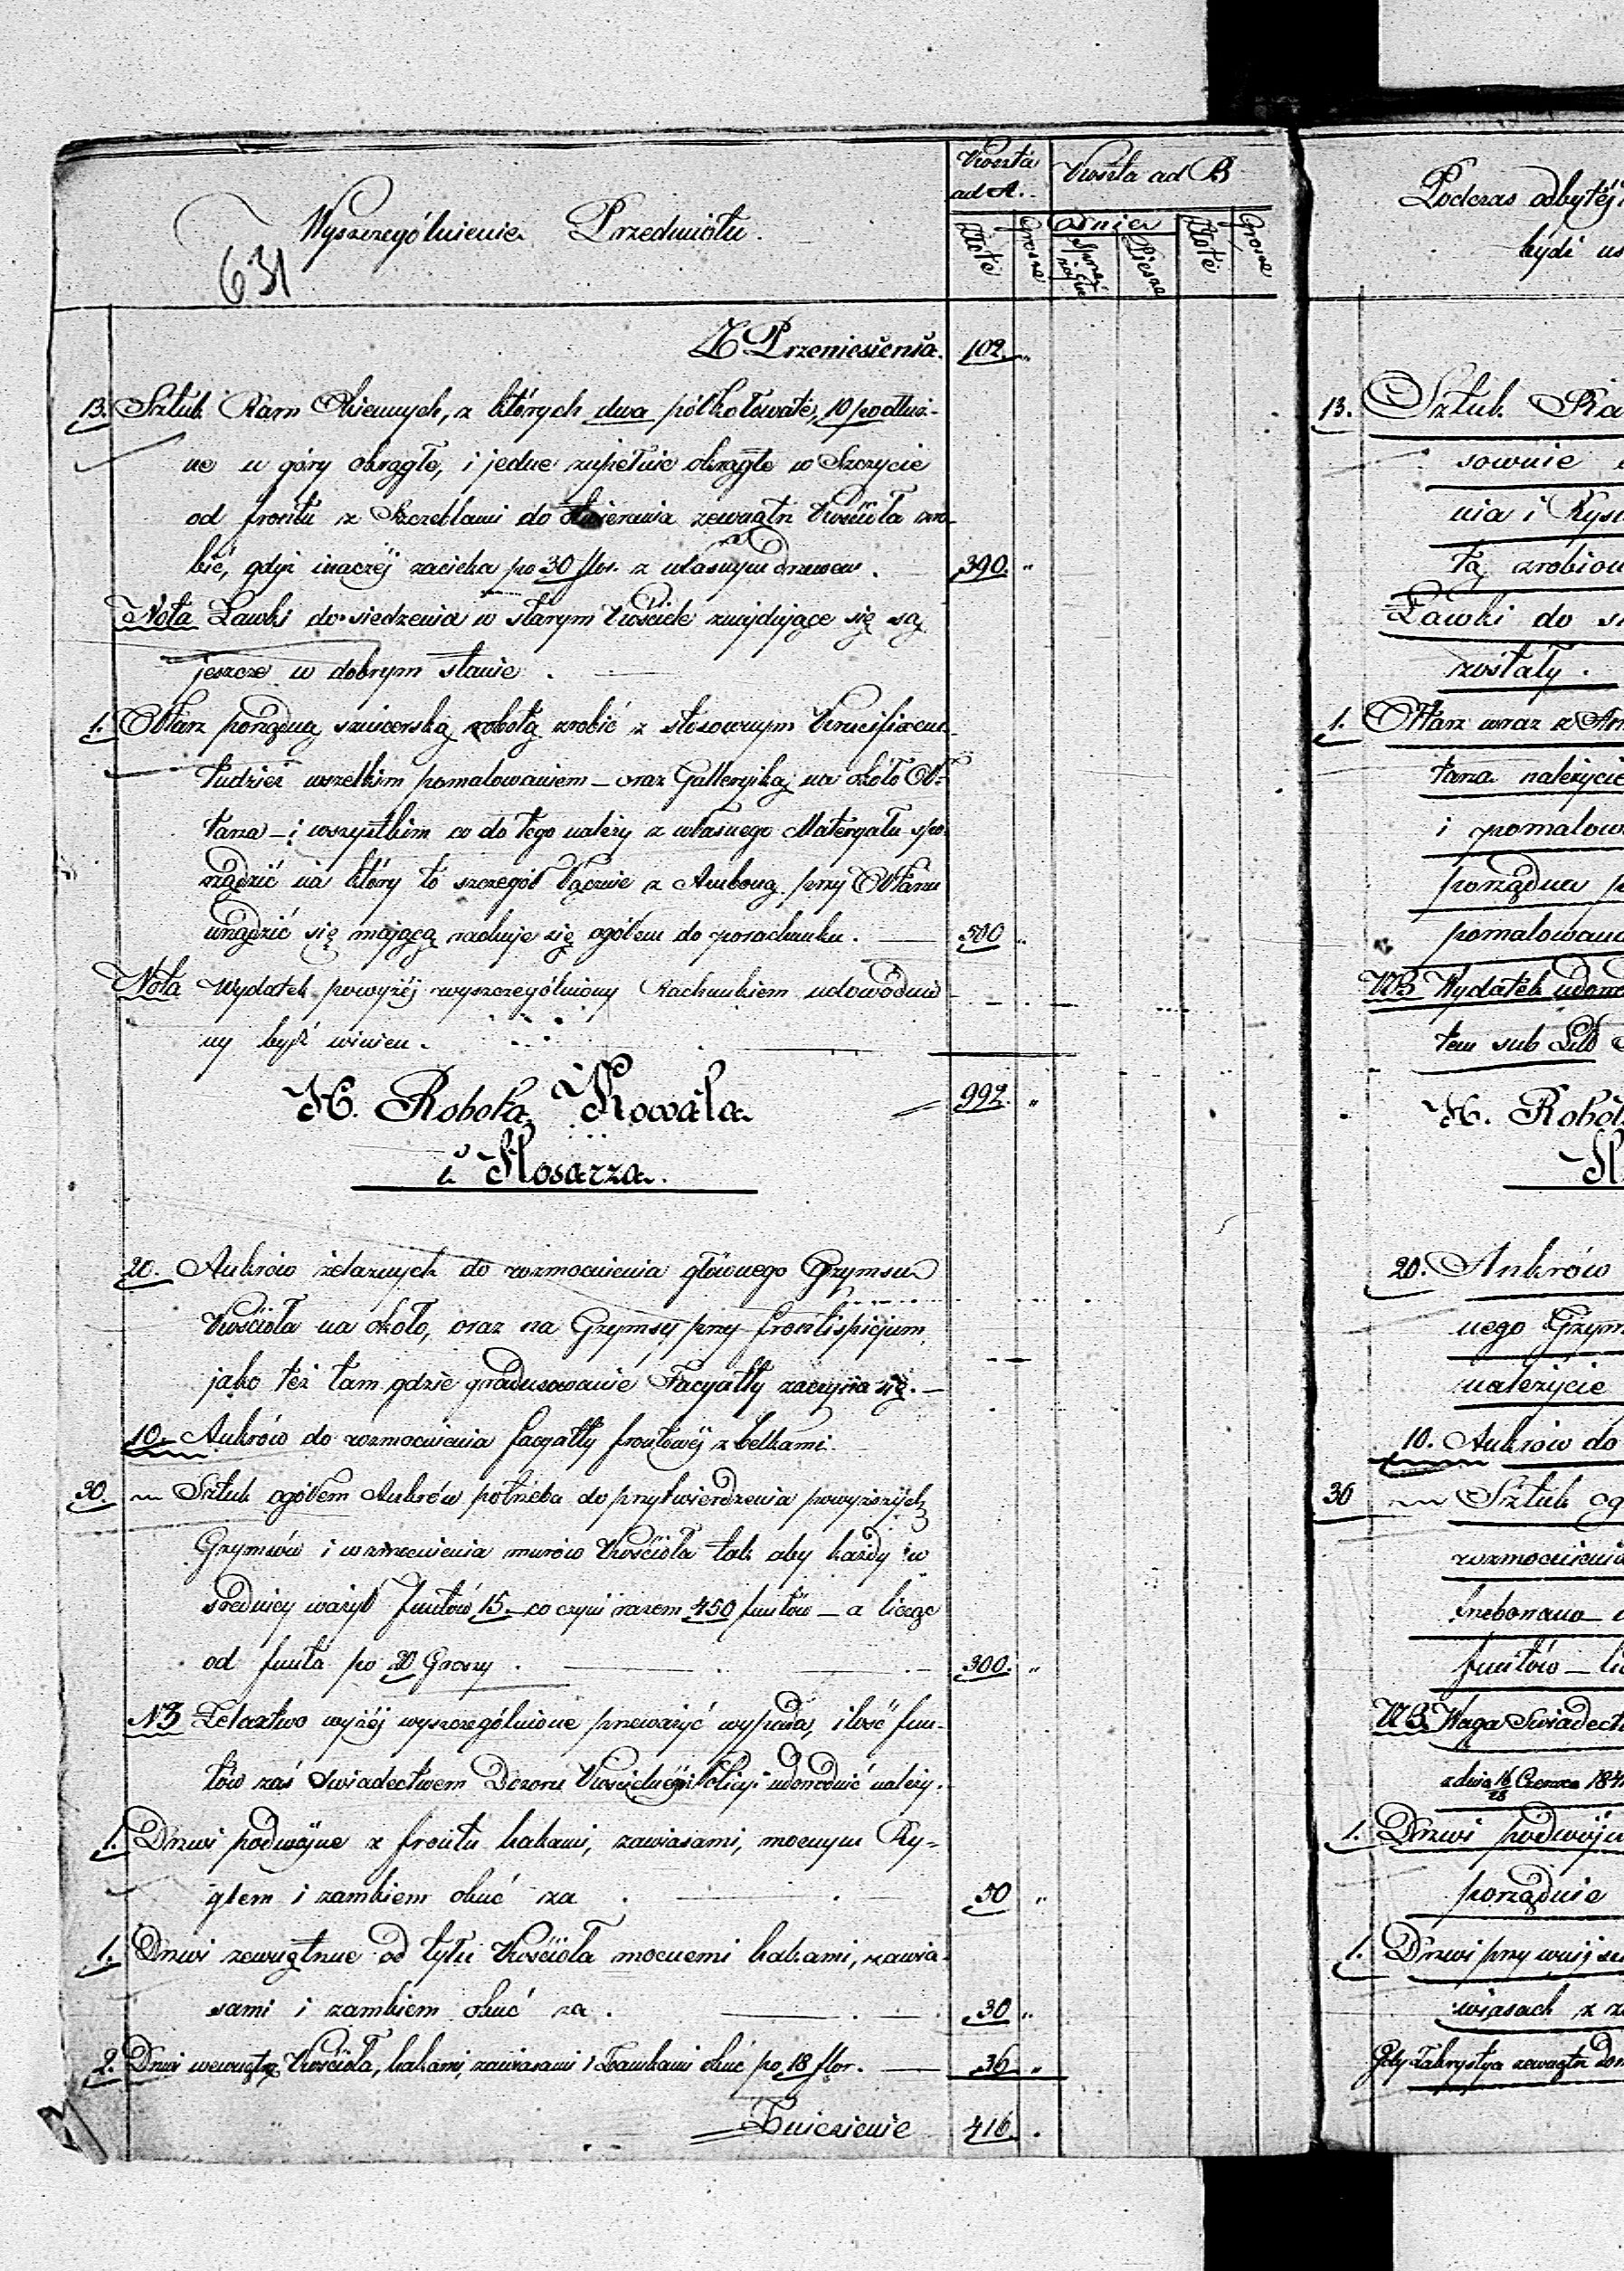 Wyszczególnienie Przedmiotu.
631
Koszta ad A.
Koszta ad B
Złote
Grosze
dnie
Sprzę-
żajne
Piesze
Złote
Grosze
Z Przeniesienia. 102. "
13. Sztuk Ram Okiennych, z których dwa półkołowate, 10 podłuż-
ne u góry okrągłe, i jedne zupełnie okrągłe w Szczycie
od frontu z Szczeblami do otwierania zewnątrz Kościoła zro-
bić, gdyż inaczéj zacieka po 30 flor. z własnym drzewem. 390. "
Nota Ławki do siedzenia w starym Kościele znajdujące się są
jeszcze w dobrym stanie.
1. Ołtarz porządną snicerską robotą zrobić z stosownym Krucifixem
tudzież wszelkim pomalowaniem – oraz Galleryjką na około Oł-
tarza – i wszystkim co do tego należy z własnego Materyału spo-
rządzić na który to szczegół łącznie z Amboną przy Ołtarzu
urządzić się mającą rachuje się ogółem do porachunku. 500 "
Nota Wydatek powyżéj wyszczególniony Rachunkiem udowodnio-
ny być winien.
992. "
H. Robota Kowala
i Slosarza.
20. Ankrów żelaznych do wzmocnienia głównego Grzymsu
Kościoła na około, oraz na Grzymsy przy frontispicjum,
jako też tam gdzie gradusowanie Facyatty zaczyna się. –
10. Ankrów do wzmocnienia facyatty frontowéj z belkami.
30. Sztuk ogółem Ankrów potrzeba do przytwierdzenia powyższych
Grzymsów i wzmocnienia murów Kościoła tak aby każdy w
średnicy ważył funtów 15. – co czyni razem 450 funtów – a licząc
od funta po 20 Groszy. 300. "
NB Żelaztwo wyżéj wyszczególnione przeważyć wypada, ilość fun-
tów zaś Świadectwem Dozoru Kościelnego i Policji udowodnić należy.
1. Drzwi podwójne z frontu hakami, zawiasami, mocnym Ry-
glem i zamkiem okuć za 50 "
1. Drzwi zewnętrzne od tyłu Kościoła mocnemi hakami, zawia-
sami i zamkiem okuć za. 30 "
2. Drzwi wewnątrz Kościoła, hakami, zawiasami i Zamkami okuć po 18 flor. 36. "
Zniesienie 416.
Podczas odbytéj
być
13. Sztuk Ra
sownie
nia i Rysu
tą zrobion
Ławki do si
zostały.
1. Ołtarz wraz z Am
tarza należycie
i pomalow
porządna p
pomalowana
NB Wydatek udowo
tem sub Litt
H. Robot
Sl
20. Ankrów
nego Grzym
należycie
10. Ankrów do
30 Sztuk og
wzmocnienia
trzebowano
funtów – li
NB. Waga Świadect
z dnia 16/28 Czerwca 184
1. Drzwi podwójn
porządnie
1. Drzwi przy
wiasach z z
Gdy Zakrystya zewnątrz